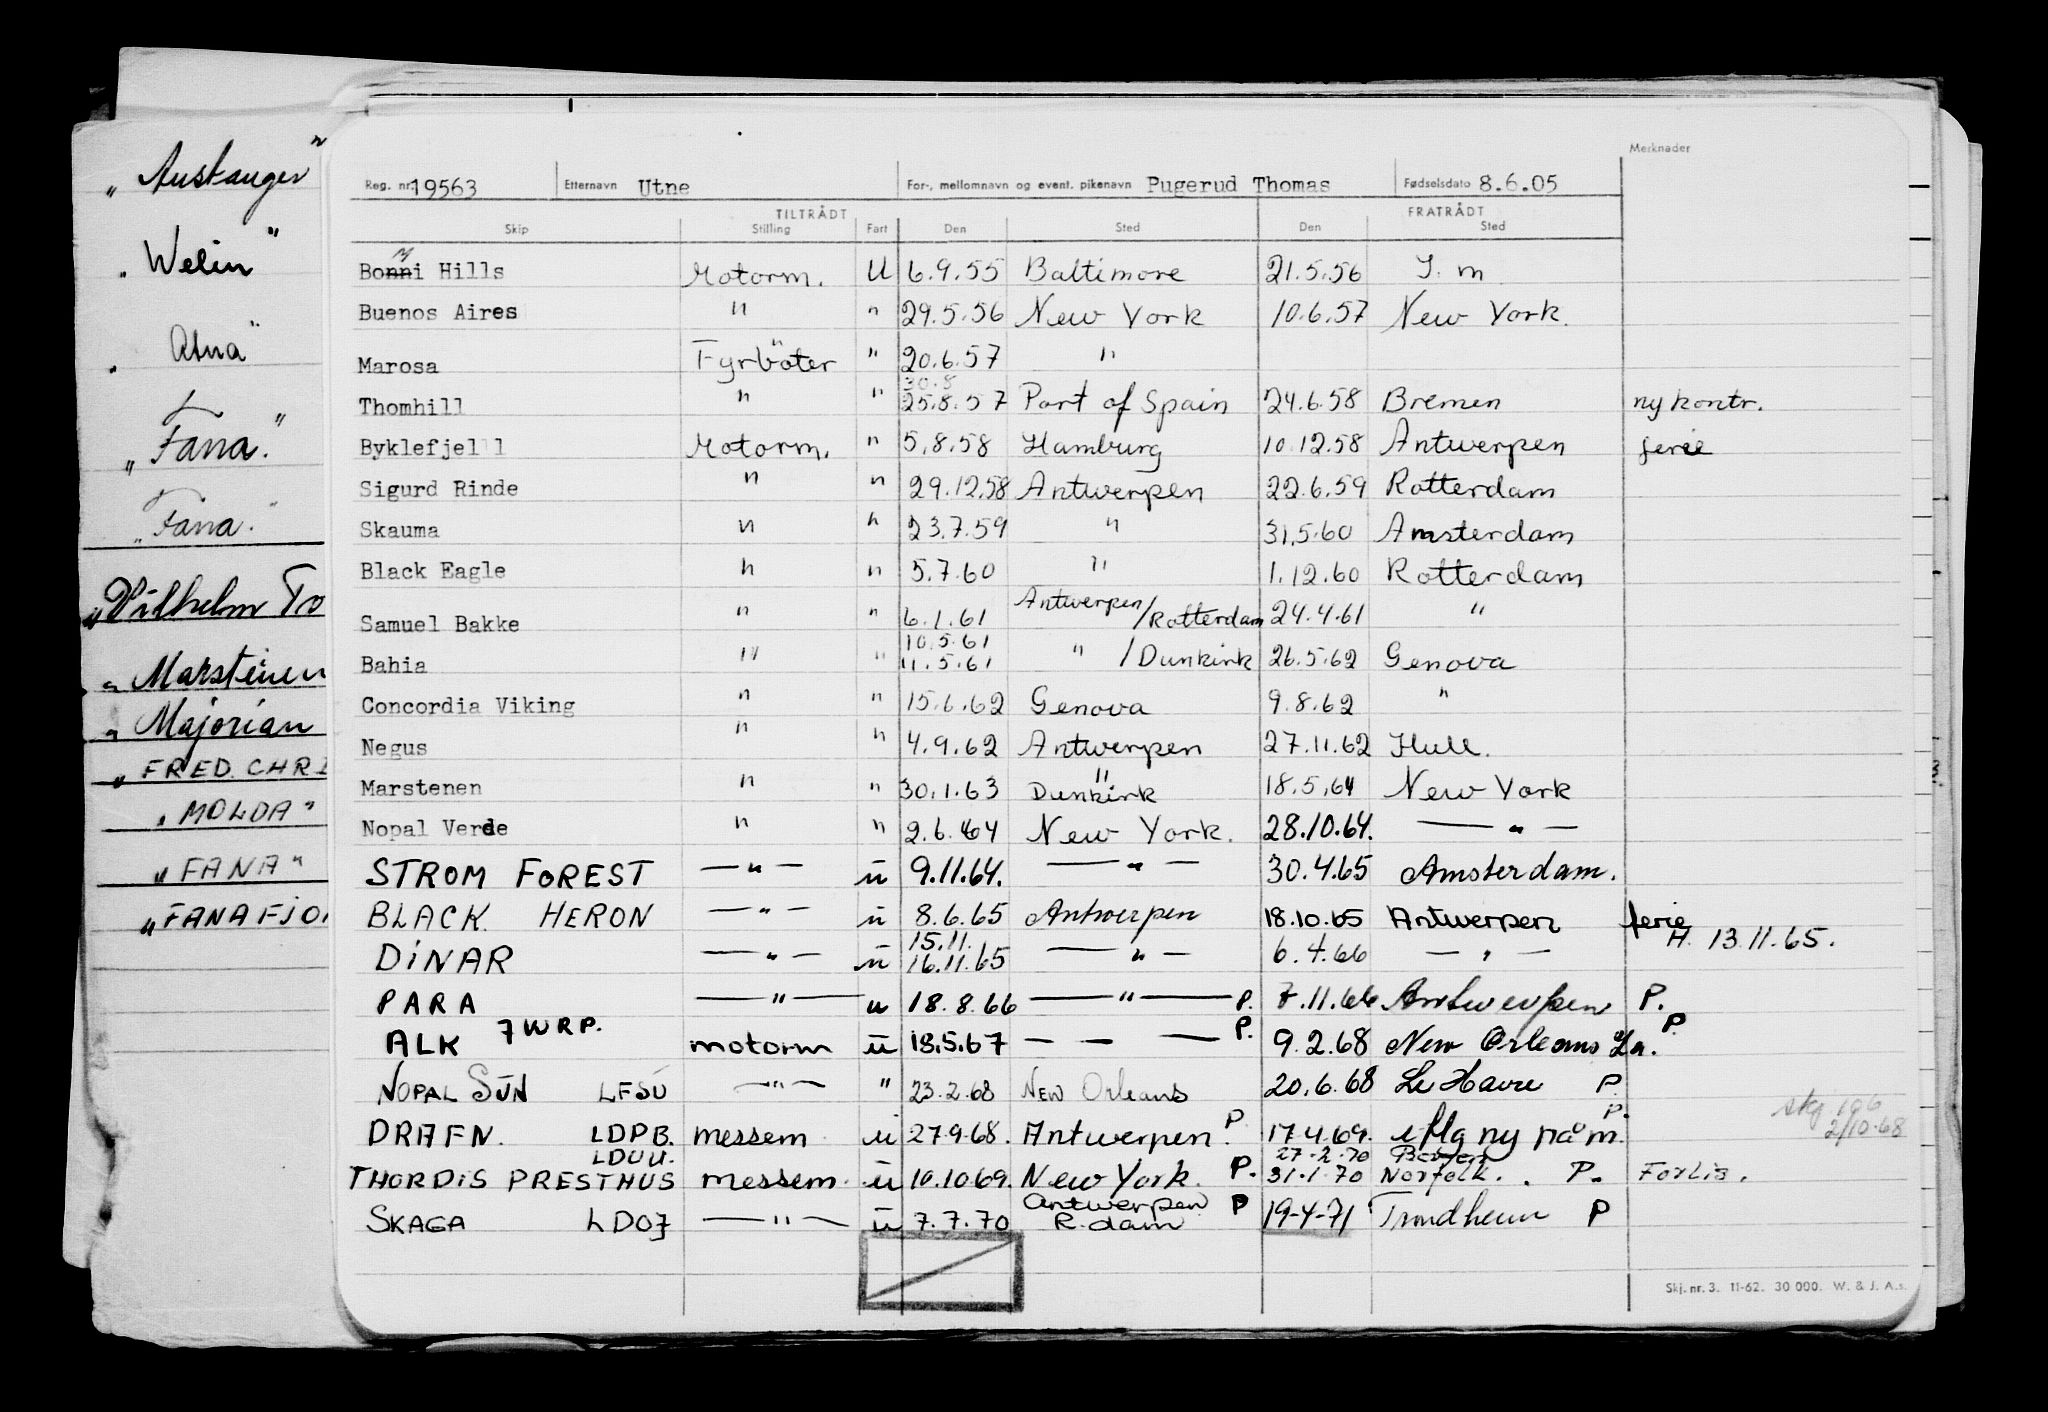 „ Austanger "
„ Welin "
„ Atna "
„ Fana. "
„ Fana. "
„ Vilhelm To
„ Marsteinen
„ Majorian
„ FRED. CHRI
„ MOLDA "
„ FANA "
„ FANAFJO
Merknader
Reg. nr. 19563 Etternavn Utne For-, mellomnavn og event. pikenavn Pugerud Thomas Fødselsdato 8.6.05
TILTRÅDT FRATRÅDT
Skip Stilling Fart Den Sted Den Sted
Bonni Hills Motorm. U 6.9.55 Baltimore 21.5.56 I. m
Buenos Aires " " 29.5.56 New York 10.6.57 New York.
Marosa Fyrbøter " 20.6.57 "
30.8
Thomhill " " 25.8.57 Port of Spain 24.6.58 Bremen ny kontr.
Byklefjell Motorm. " 5.8.58 Hamburg 10.12.58 Antwerpen ferie
Sigurd Rinde " " 29.12.58 Antwerpen 22.6.59 Rotterdam
Skauma " " 23.7.59 " 31.5.60 Amsterdam
Black Eagle " " 5.7.60 " 1.12.60 Rotterdam
Samuel Bakke " " 6.1.61 Antwerpen/Rotterdam 24.4.61 "
10.5.61
Bahia " " 11.5.61 " /Dunkirk 26.5.62 Genova
Concordia Viking " " 15.6.62 Genova 9.8.62 "
Negus " " 4.9.62 Antwerpen 27.11.62 Hull.
Marstenen " " 30.1.63 " Dunkirk 18.5.64 New York
Nopal Verde " " 2.6.64 New York. 28.10.64. — " —
STROM FOREST — " — u 9.11.64. — " — 30.4.65 Amsterdam.
BLACK HERON — " — u 8.6.65 Antwerpen 18.10.65 Antwerpen ferie
15.11. H. 13.11.65.
DINAR — " — u 16.11.65 — " — 6.4.66 — " —
PARA — " — u 18.8.66 — " — P. 7.11.66 Antwerpen P.
ALK 7WRP. motorm u 18.5.67 — — — P. 9.2.68 New Orleans La. P
NOPAL SUN LFSU — " — " 23.2.68 NEW Orleans 20.6.68 Le Havre P
skj. 196
2/10-68
DRAFN. LDPB. messem u 27.9.68. Antwerpen. P 17.4.69. eflg ny på m. P.
LDUU. 27-2-70 Bergen
THORDIS PRESTHUS messem. u 10.10.69. New York. P. 31.1.70 Norfolk. . P. Forlis.
Antwerpen
SKAGA LDOJ — " — u 7.7.70 R.dam P 19-4-71 Trondheim P
Skj. nr. 3. 11-62. 30 000. W. & J. A.s.